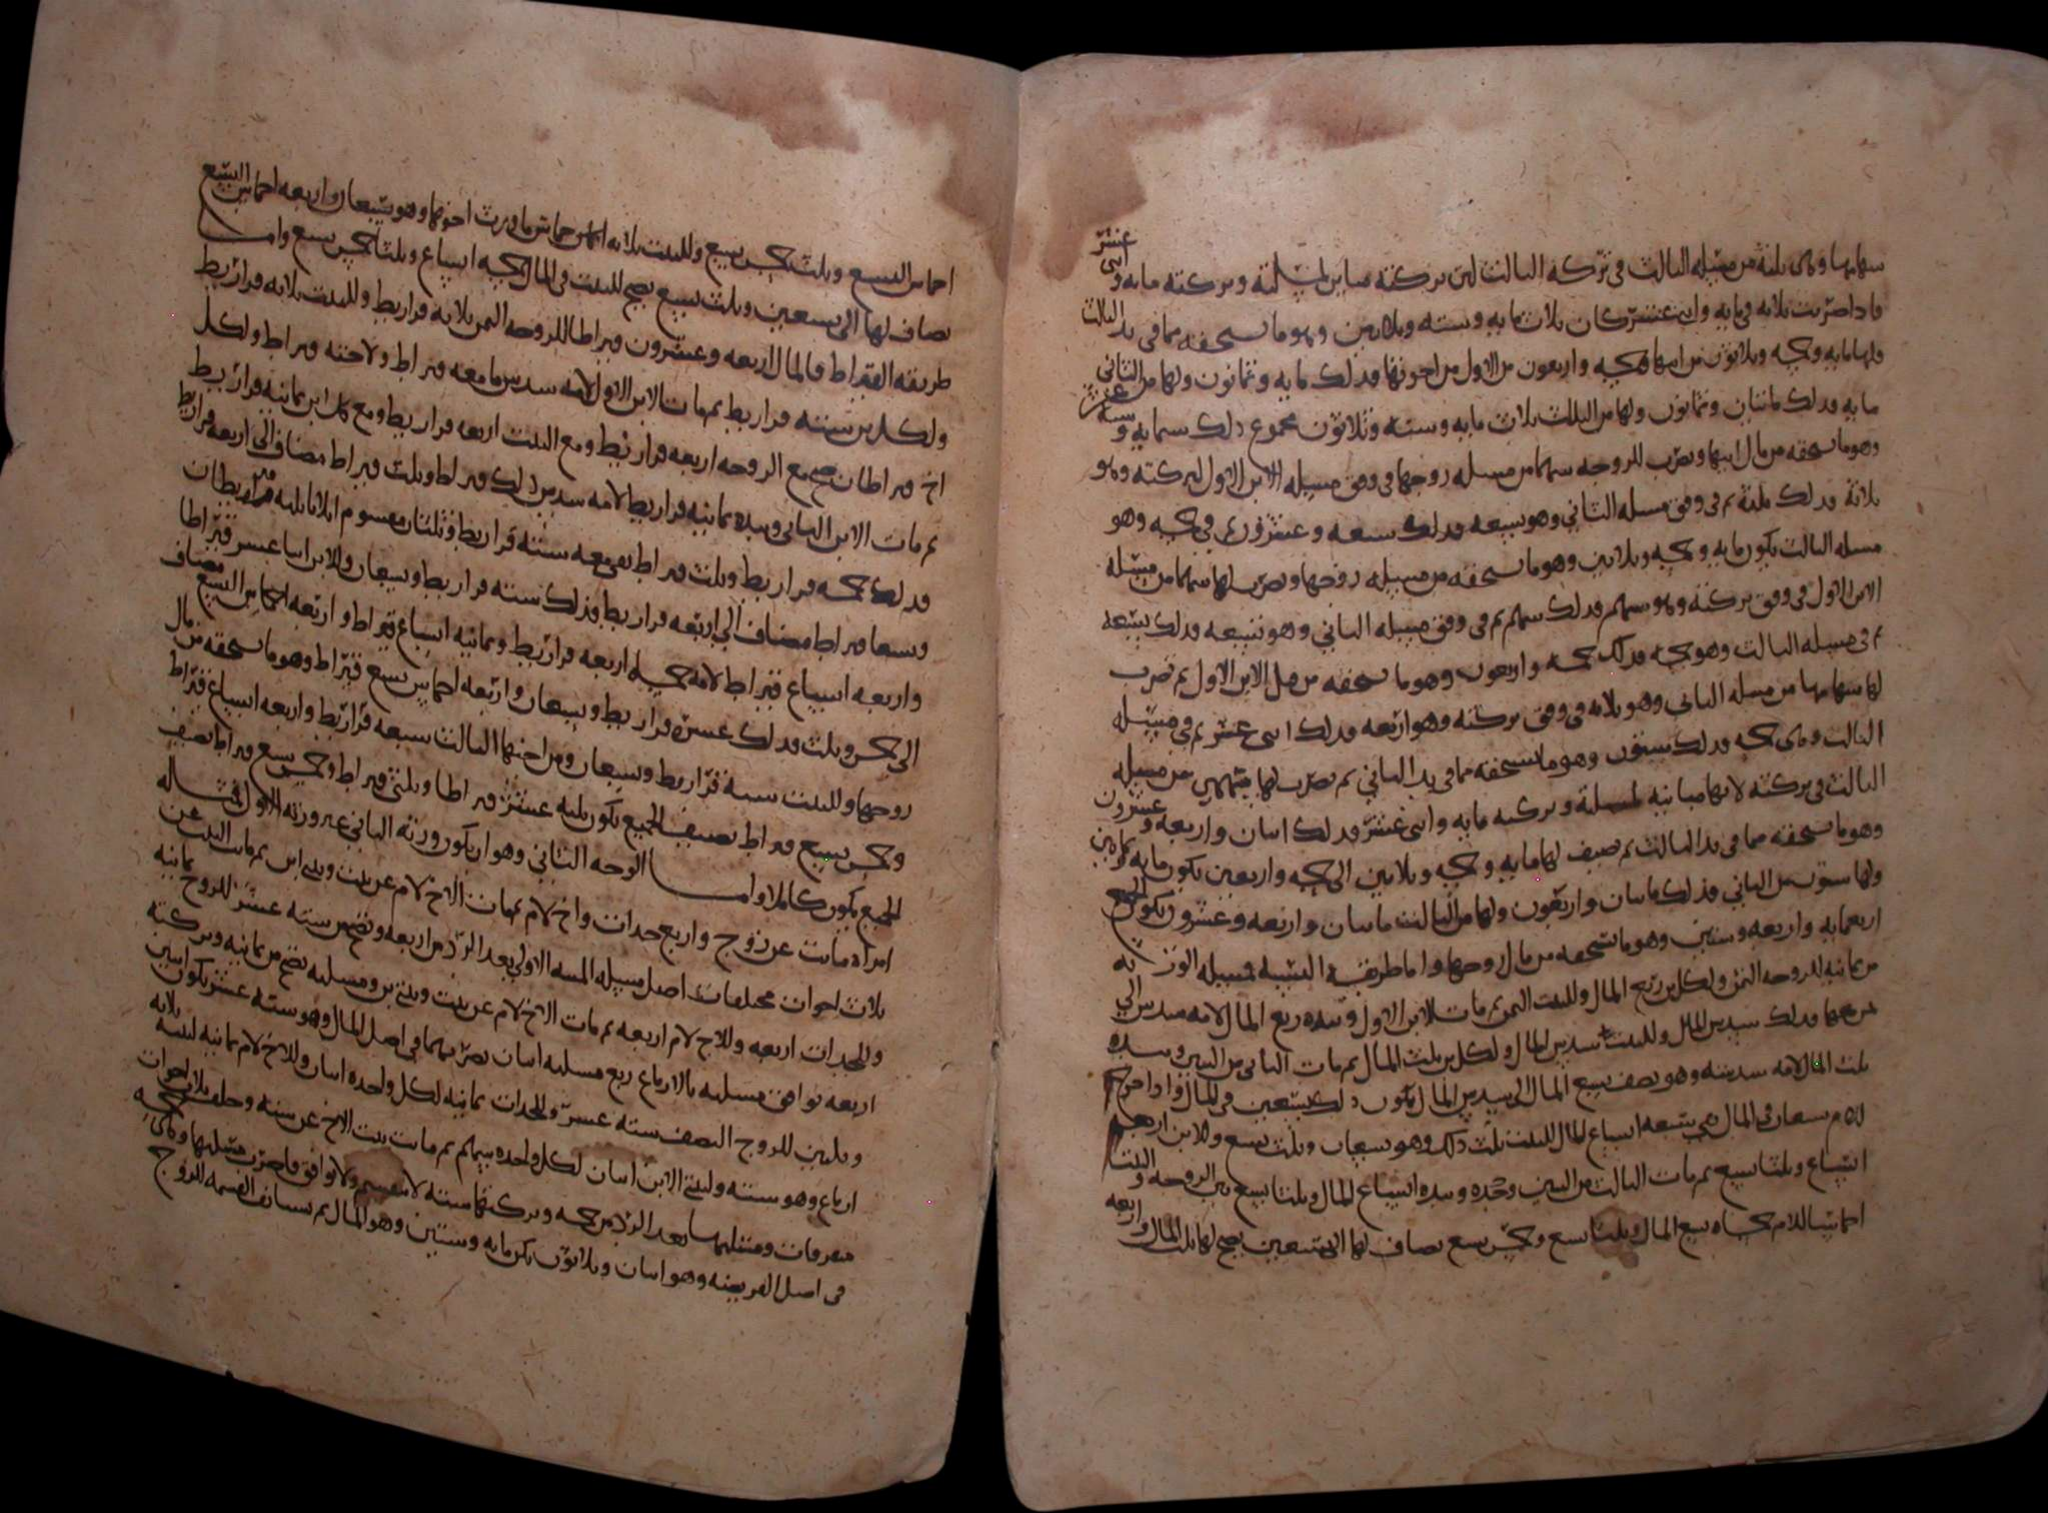 سهامها وهي ثلثة من مسئله الثالث في تركه الثالث لان تركته تباين لمسئلته وتركته مايه واثنى عشر
فاذا ضربت ثلاثه في مايه واثنى عشر كان ثلاث مايه وسته وثلاثين وهو ما تستحقه مما في يد الثالث
فلها مايه وخمسه وثلاثون من ابيها وخمسه واربعون من الاول من اخوتها فذلك مايه وثمانون ولها من الثاني
مايه فذلك مائتان وثمانون ولها من الثالث ثلاث مايه وسته وثلاثون مجموع ذلك ستمايه وسته عشر
وهو ما تستحقه من مال ابيها وتضرب للزوجه سهما من مسئله زوجها في وفق مسئله الابن الاول لتركته وهو
ثلاثة فذلك ثلثة ثم في وفق مسئله الثاني وهو تسعه فذلك سبعه وعشرون ثم في خمسه وهو
مسئله الثالث يكون مايه وخمسه وثلاثين وهو ما تستحقه من مسئله زوجها وتضرب لها سهما من مسئله
الابن الاول في وفق تركته وهو سهم فذلك سهم ثم في وفق مسئله الثاني وهو تسعه فذلك تسعه
ثم في مسئله الثالث وهو خمسه فذلك خمسه واربعون وهو ما تستحقه من مال الابن الاول ثم تضرب
لها سهامها من مسئله الثاني وهو ثلاثه في وفق تركته وهو اربعه فذلك اثنى عشر ثم في مسئله
الثالث وهي خمسه فذلك ستون وهو ما تستحقه مما في يد الثاني ثم تضرب لها سهمين من مسئله
الثالث في تركته لانها مباينه لمسئلته وتركته مايه واثنى عشر فذلك مائتان واربعه وعشرون
وهو ما تستحقه مما في يد الثالث ثم تضيف لها مايه وخمسه وثلاثين الى خمسه واربعين يكون مايه وثمانين
ولها ستون من الثاني فذلك مائتان واربعون ولها من الثالث مائتان واربعه وعشرون يكون الجميع
اربعمايه واربعه وستين وهو ما تستحقه من مال زوجها واما طريقة النسبه فمسئله الوراثه
من ثمانيه للزوجه الثمن ولكل بن ربع المال وللبنت الثمن ثم مات الابن الاول وبيده ربع المال لامه سدس الى
ثمنها فذلك سدس المال وللبنت سدس المال ولكل بن ثلث المال ثم مات الثاني من البنين وبيده
ثلث المال لامه سدسه وهو نصف تسع المال الى سدس المال يكون ذلك تسعين في المال واذا خرج
للام تسعان في المال بقي سبعه اتساع المال للبنت ثلث ذلك وهو تسعان وثلث تسع وللابن اربعه
اتساع وثلثا تسع ثم مات الثالث من البنين وحده وبيده اتساع المال وثلثا تسع بين الزوجه والبنت
اخماسا للام خمساه تسع المال وثلثا تسع وخمس تسع تضاف لها الى تسعين يصح لها ثلث المال واربعه
اخماس التسع وثلث خمس تسع وللبنت ثلاثه اخماس ما ورث اخوتها وهو تسعان واربعه اخماس التسع
تضاف لها الى تسعين وثلث تسع يصح للبنت في المال خمسه اتساع وثلثا خمس تسع واما
طريقه القيراط فالمال اربعه وعشرون قيراطا للزوجه الثمن ثلاثه قراريط وللبنت ثلاثه قراريط
ولكل بن سته قراريط ثم مات الابن الاول لامه سدس ما معه قيراط ولاخته قيراط ولكل
اخ قيراطان صح مع الزوجه اربعه قراريط ومع البنت اربعه قراريط ومع كل ابن ثمانيه قراريط
ثم مات الابن الثاني وبيده ثمانيه قراريط لامه سدس ذلك قيراط وثلث قيراط مضاف الى اربعه قراريط
فذلك خمسه قراريط وثلث قيراط بقي معه سته قراريط وثلثان مقسوم اثلاثا ثلثه قيراطان
وتسعا قيراط مضاف الى اربعه قراريط فذلك سته قراريط وتسعان وللابن اثنا عشر قيراطا
واربعه اتساع قيراط لامه خمسه اربعه قراريط وثمانيه اتساع قيراط واربعه اخماس التسع مضاف
الى خمس وثلث فذلك عشره قراريط وتسعان واربعه اخماس تسع قيراط وهو ما تستحقه من مال
زوجها وللبنت سته قراريط وتسعان ومن اخيها الثالث سبعه قراريط واربعه اتساع قيراط
وخمس تسع قيراط تضيف الجميع يكون ثلثه عشر قيراطا وثلثي قيراط وخمس تسع قيراط تضيف
الجميع يكون كاملا واما الوجه الثاني وهو ان يكون ورثة الثاني غير ورثه الاول فمثاله
امراه ماتت عن زوج واربع جدات واخ لام ثم مات الاخ لام عن بنت وبنتي ابن ثم مات البنت عن
ثلاث اخوات مختلفات اصل مسئله الميته الاولى بعد الرد من اربعه وتصح من سته عشر للزوج ثمانيه
وللجدات اربعه وللاخ لام اربعه ثم مات الاخ لام عن بنت وبنتي بن ومسئلته تصح من ثمانيه وتركته
اربعه توافق مسئلته بالارباع ربع مسئلته اثنان تضربهما في اصل المال وهو سته عشر يكون اثنين
وثلثين للزوج النصف سته عشر وللجدات ثمانيه لكل واحده اثنان وللاخ لام ثمانيه لبنته ثلاثه
ارباع وهو سته ولبنتي الابن اثنان لكل واحده سهم ثم ماتت بنت الاخ عن سته وخلفت ثلاث اخوات
متفرقات ومسئلتها بعد الرد من خمسه وتركتها سته لا تنقسم ولا توافق فاضرب مسئلتها وهي خمسه
في اصل الفريضه وهو اثنان وثلاثون يكن مايه وستين وهو المال ثم تستانف القسمه للزوج